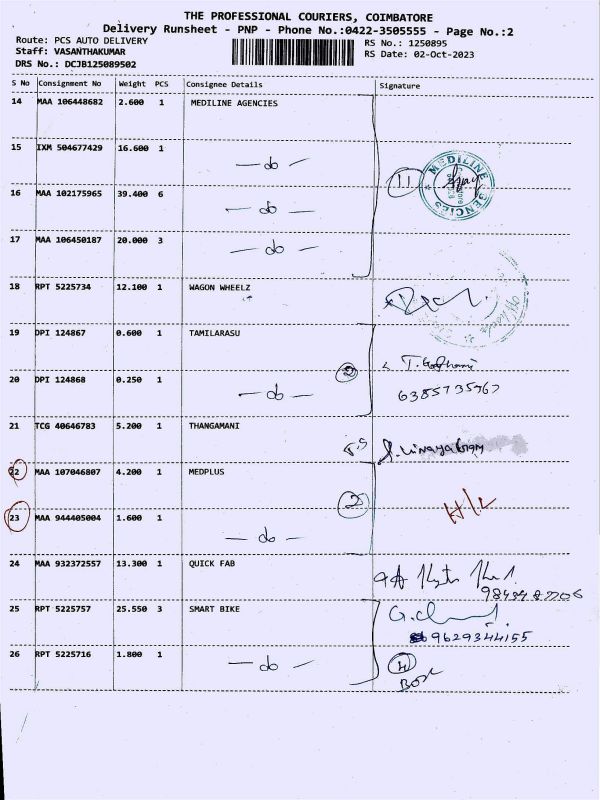 THE PROFESSIONAL COURIERS, COIMBATORE
Delivery Runsheet - PNP - Phone No.:0422-3505555 - Page No.:2
Route: PCS AUTO DELIVERY
RS No.: 1250895
Staff: VASANTHAKUMAR
RS Date: 02-Oct-2023
DRS No.: DCJB125089502
S No Consignment No Weight PCS Consignee Details Signature
14 MAA 106448682 2.600 1 MEDILINE AGENCIES
15 IXM 504677429 16.600 1 - do -
11 MEDILINE AGENCIES
16 MAA 102175965 39.400 6 - do -
17 MAA 106450187 20.000 3 - do -
18 RPT 5225734 12.100 1 WAGON WHEELZ
19 DPI 124867 0.600 1 TAMILARASU
2
20 DPI 124868 0.250 1 - do -
21 TCG 40646783 5.200 1 THANGAMANI
22 MAA 107046807 4.200 1 MEDPLUS
2 H/L
23 MAA 944405004 1.600 1 - do -
24 QUICK FAB MAA 932372557 13.300 1
25 RPT 5225757 25.550 3 SMART BIKE
9629344155
26 RPT 5225716 1.800 1 - do -
4
Box